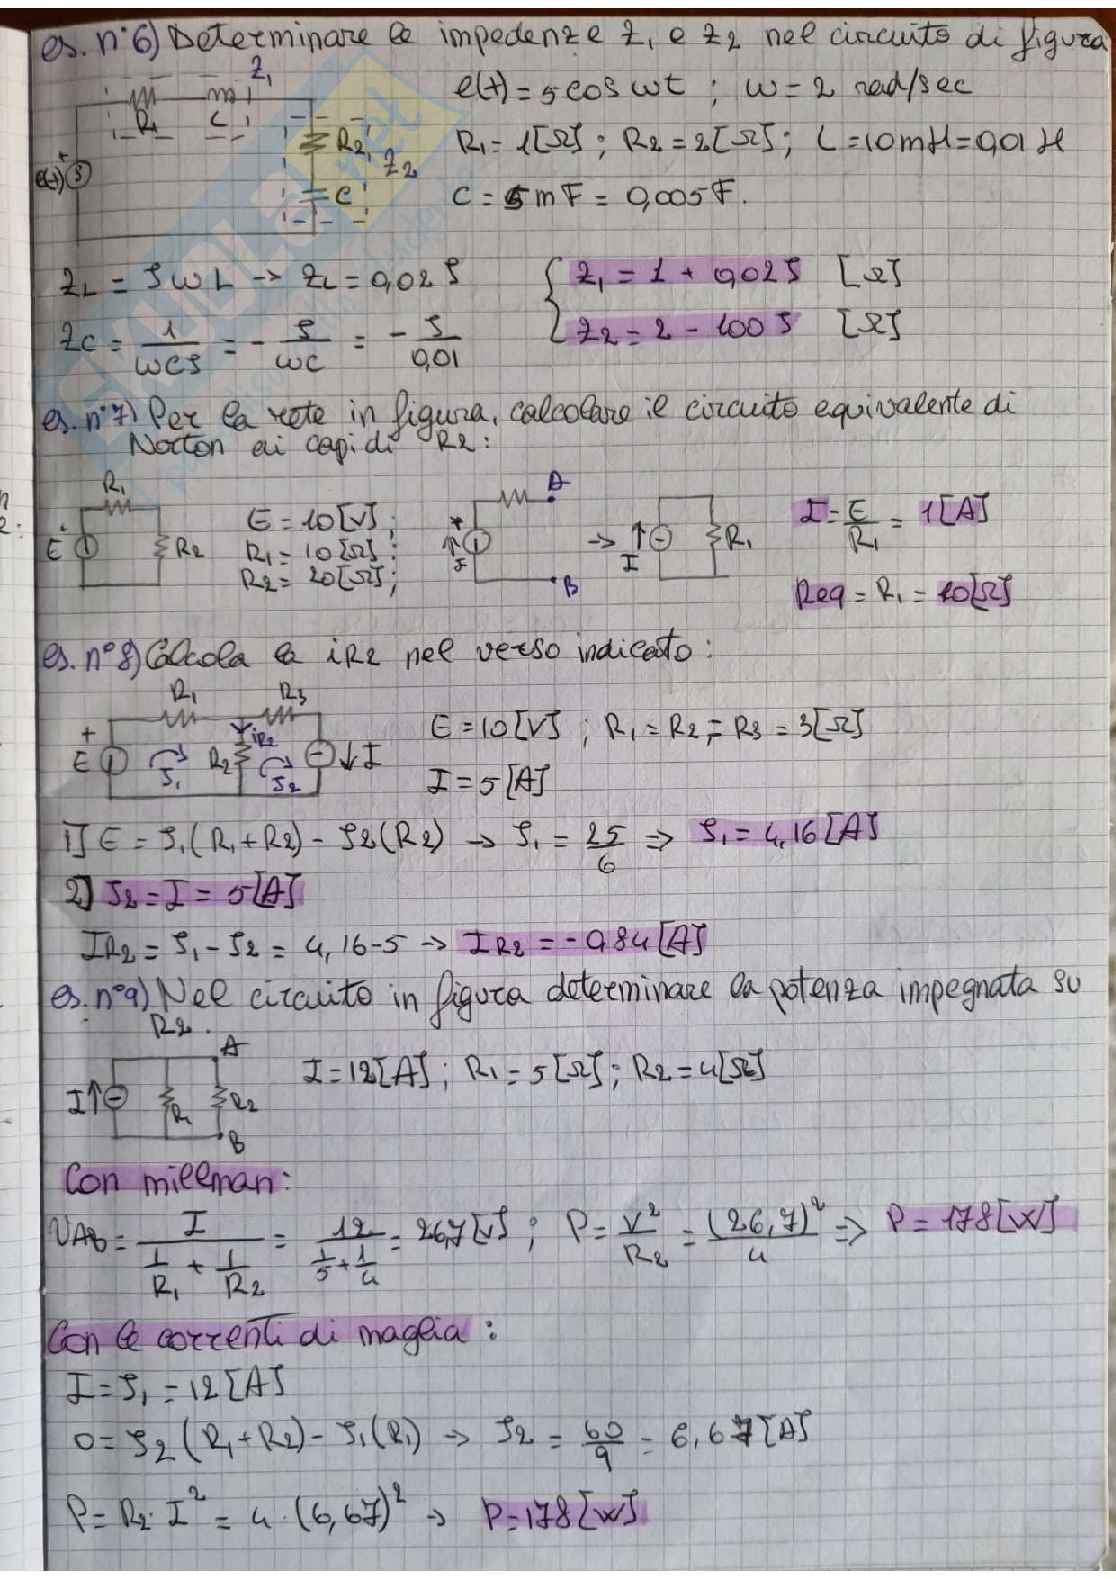 es. n°6) Determinare le impedenze Z₁ e Z₂ nel circuito di figura
e(t) = 5 cos ωt ; ω = 2 rad/sec
Z₁
R₁ L
R₁ = 1[Ω] ; R₂ = 2[Ω] ; L = 10mH = 0,01 H
R₂ Z₂
e(t)
C
C = 5 mF = 0,005 F.
Z_L = J ω L → Z_L = 0,02 J
Z₁ = 1 + 0,02 J [Ω]
Z_C = 1/(ωCJ) = - J/(ωC) = - J/0,01
Z₂ = 2 - 100 J [Ω]
es. n°7) Per la rete in figura, calcolare il circuito equivalente di
Norton ai capi di R₂ :
R₁ R₂ E
E = 10[V] ;
R₁ = 10[Ω] ;
R₂ = 20[Ω] ;
A B
→ I R₁
I = E/R₁ = 1[A]
Req = R₁ = 10[Ω]
es. n°8) Calcola la iR2 nel verso indicato :
R₁ R₃
E J₁ R₂ iR2 J₂ I
E = 10[V] ; R₁ = R₂ = R₃ = 3[Ω]
I = 5[A]
1] E = J₁(R₁+R₂) - J₂(R₂) → J₁ = 25/6 ⇒ J₁ = 4,16[A]
2] J₂ = I = 5[A]
IR2 = J₁ - J₂ = 4,16-5 → IR2 = -0,84[A]
es. n°9) Nel circuito in figura determinare la potenza impegnata su
R₂.
A
I R₁ R₂
B
I = 12[A] ; R₁ = 5[Ω] ; R₂ = 4[Ω]
Con millman:
VAB = I/(1/R₁ + 1/R₂) = 12/(1/5 + 1/4) = 26,7[V] ; P = V²/R₂ = (26,7)²/4 ⇒ P = 178[W]
Con le correnti di maglia :
I = J₁ = 12[A]
0 = J₂(R₁+R₂) - J₁(R₁) → J₂ = 60/9 = 6,67[A]
P = R₂·I² = 4·(6,67)² → P = 178[W]